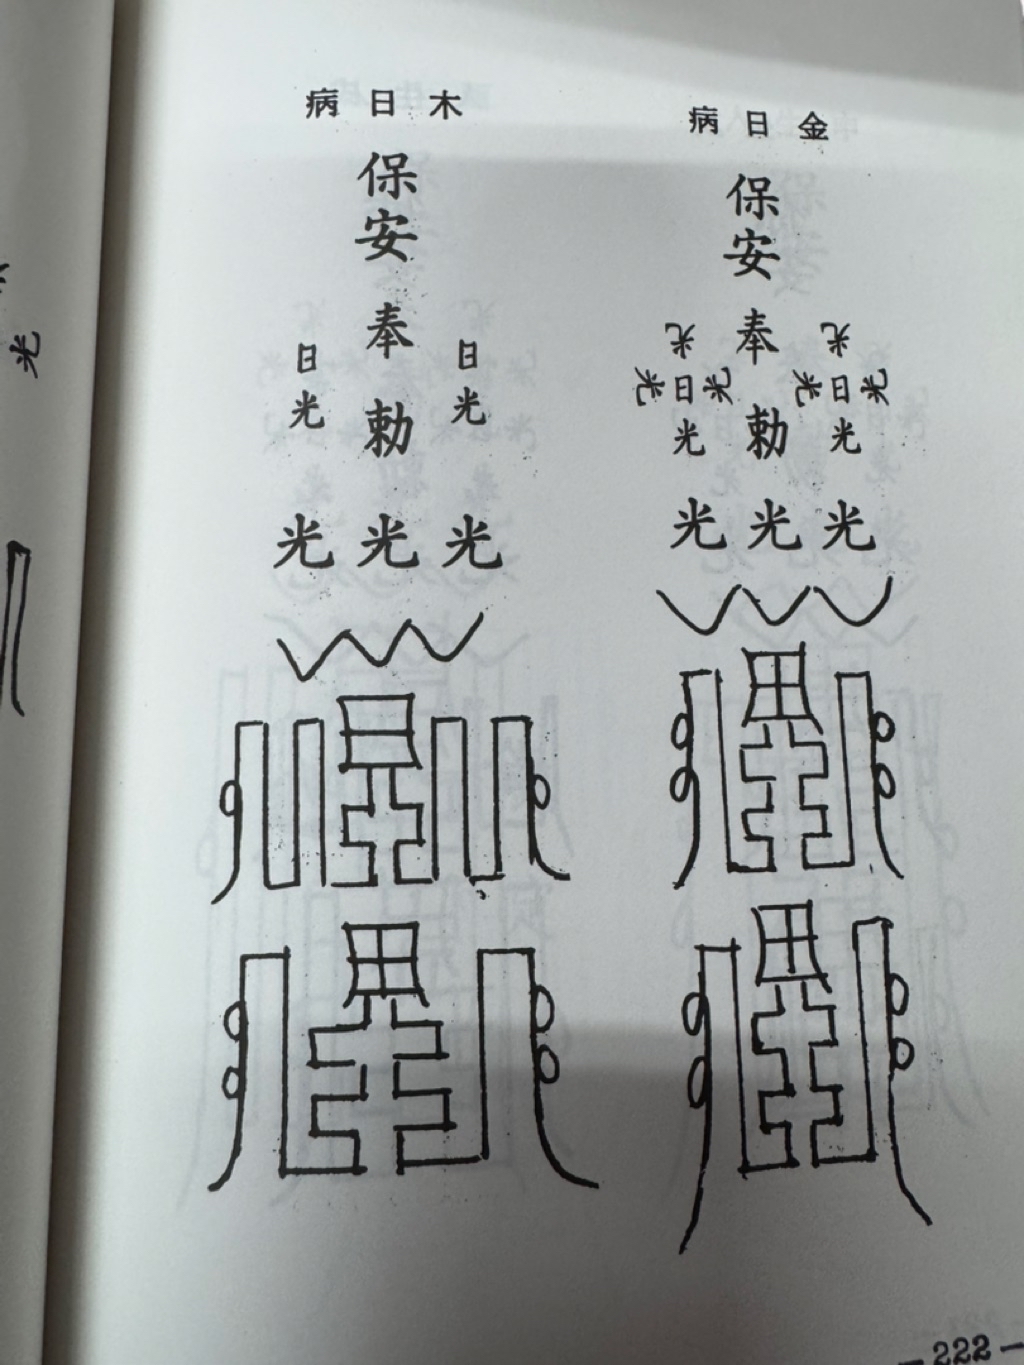 金日病
保安
奉勅
光
光日光
光
光
光日光
光
光光光
木日病
保安
奉勅
日光
日光
光光光
光
—222—